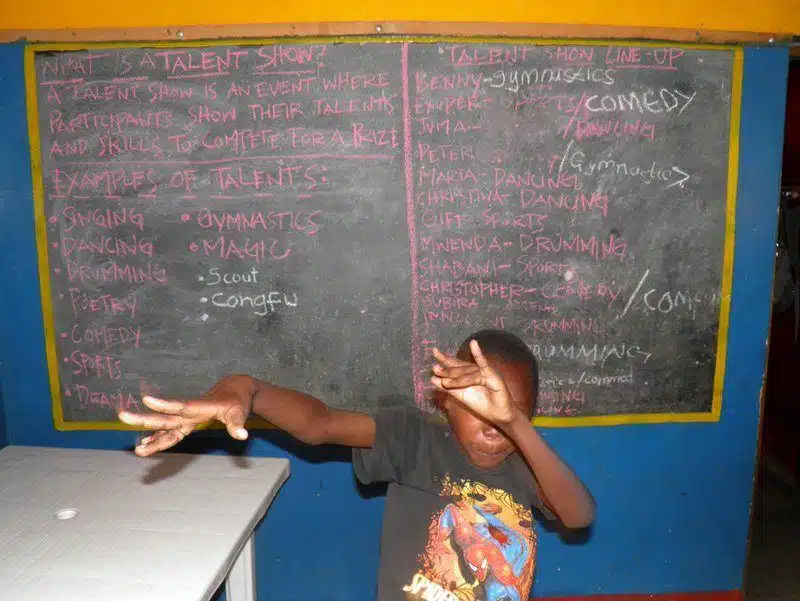 WHAT IS A TALENT SHOW?
A TALENT SHOW IS AN EVENT WHERE
PARTICIPANTS SHOW THEIR TALENTS
AND SKILLS TO COMPETE FOR A PRIZE
EXAMPLES OF TALENTS:
• SINGING
• DANCING
• DRUMMING
• POETRY
• COMEDY
• SPORTS
• DRAMA
• GYMNASTICS
• MAGIC
• Scout
• Congfu
TALENT SHOW LINE-UP
BENNY-gymnastics
EXUPER- /COMEDY
JUMA- /DANCING
PETER /Gymnastics
MARIA-DANCING
CHRISTINA-DANCING
GIFT-SPORTS
MWENDA-DRUMMING
SHABANI-SPORTS
CHRISTOPHER-COMEDY /
SUBIRA
DRUMMING
DRUMMING
/commed
SPIDER